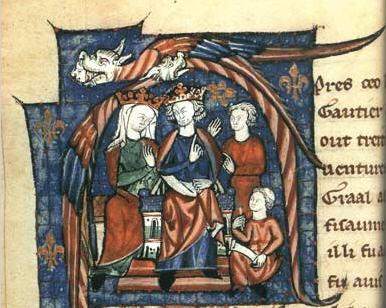 pres ceo
Gautier
out tret
uenture
Graal a
fisaume
illi fu a
fu auis